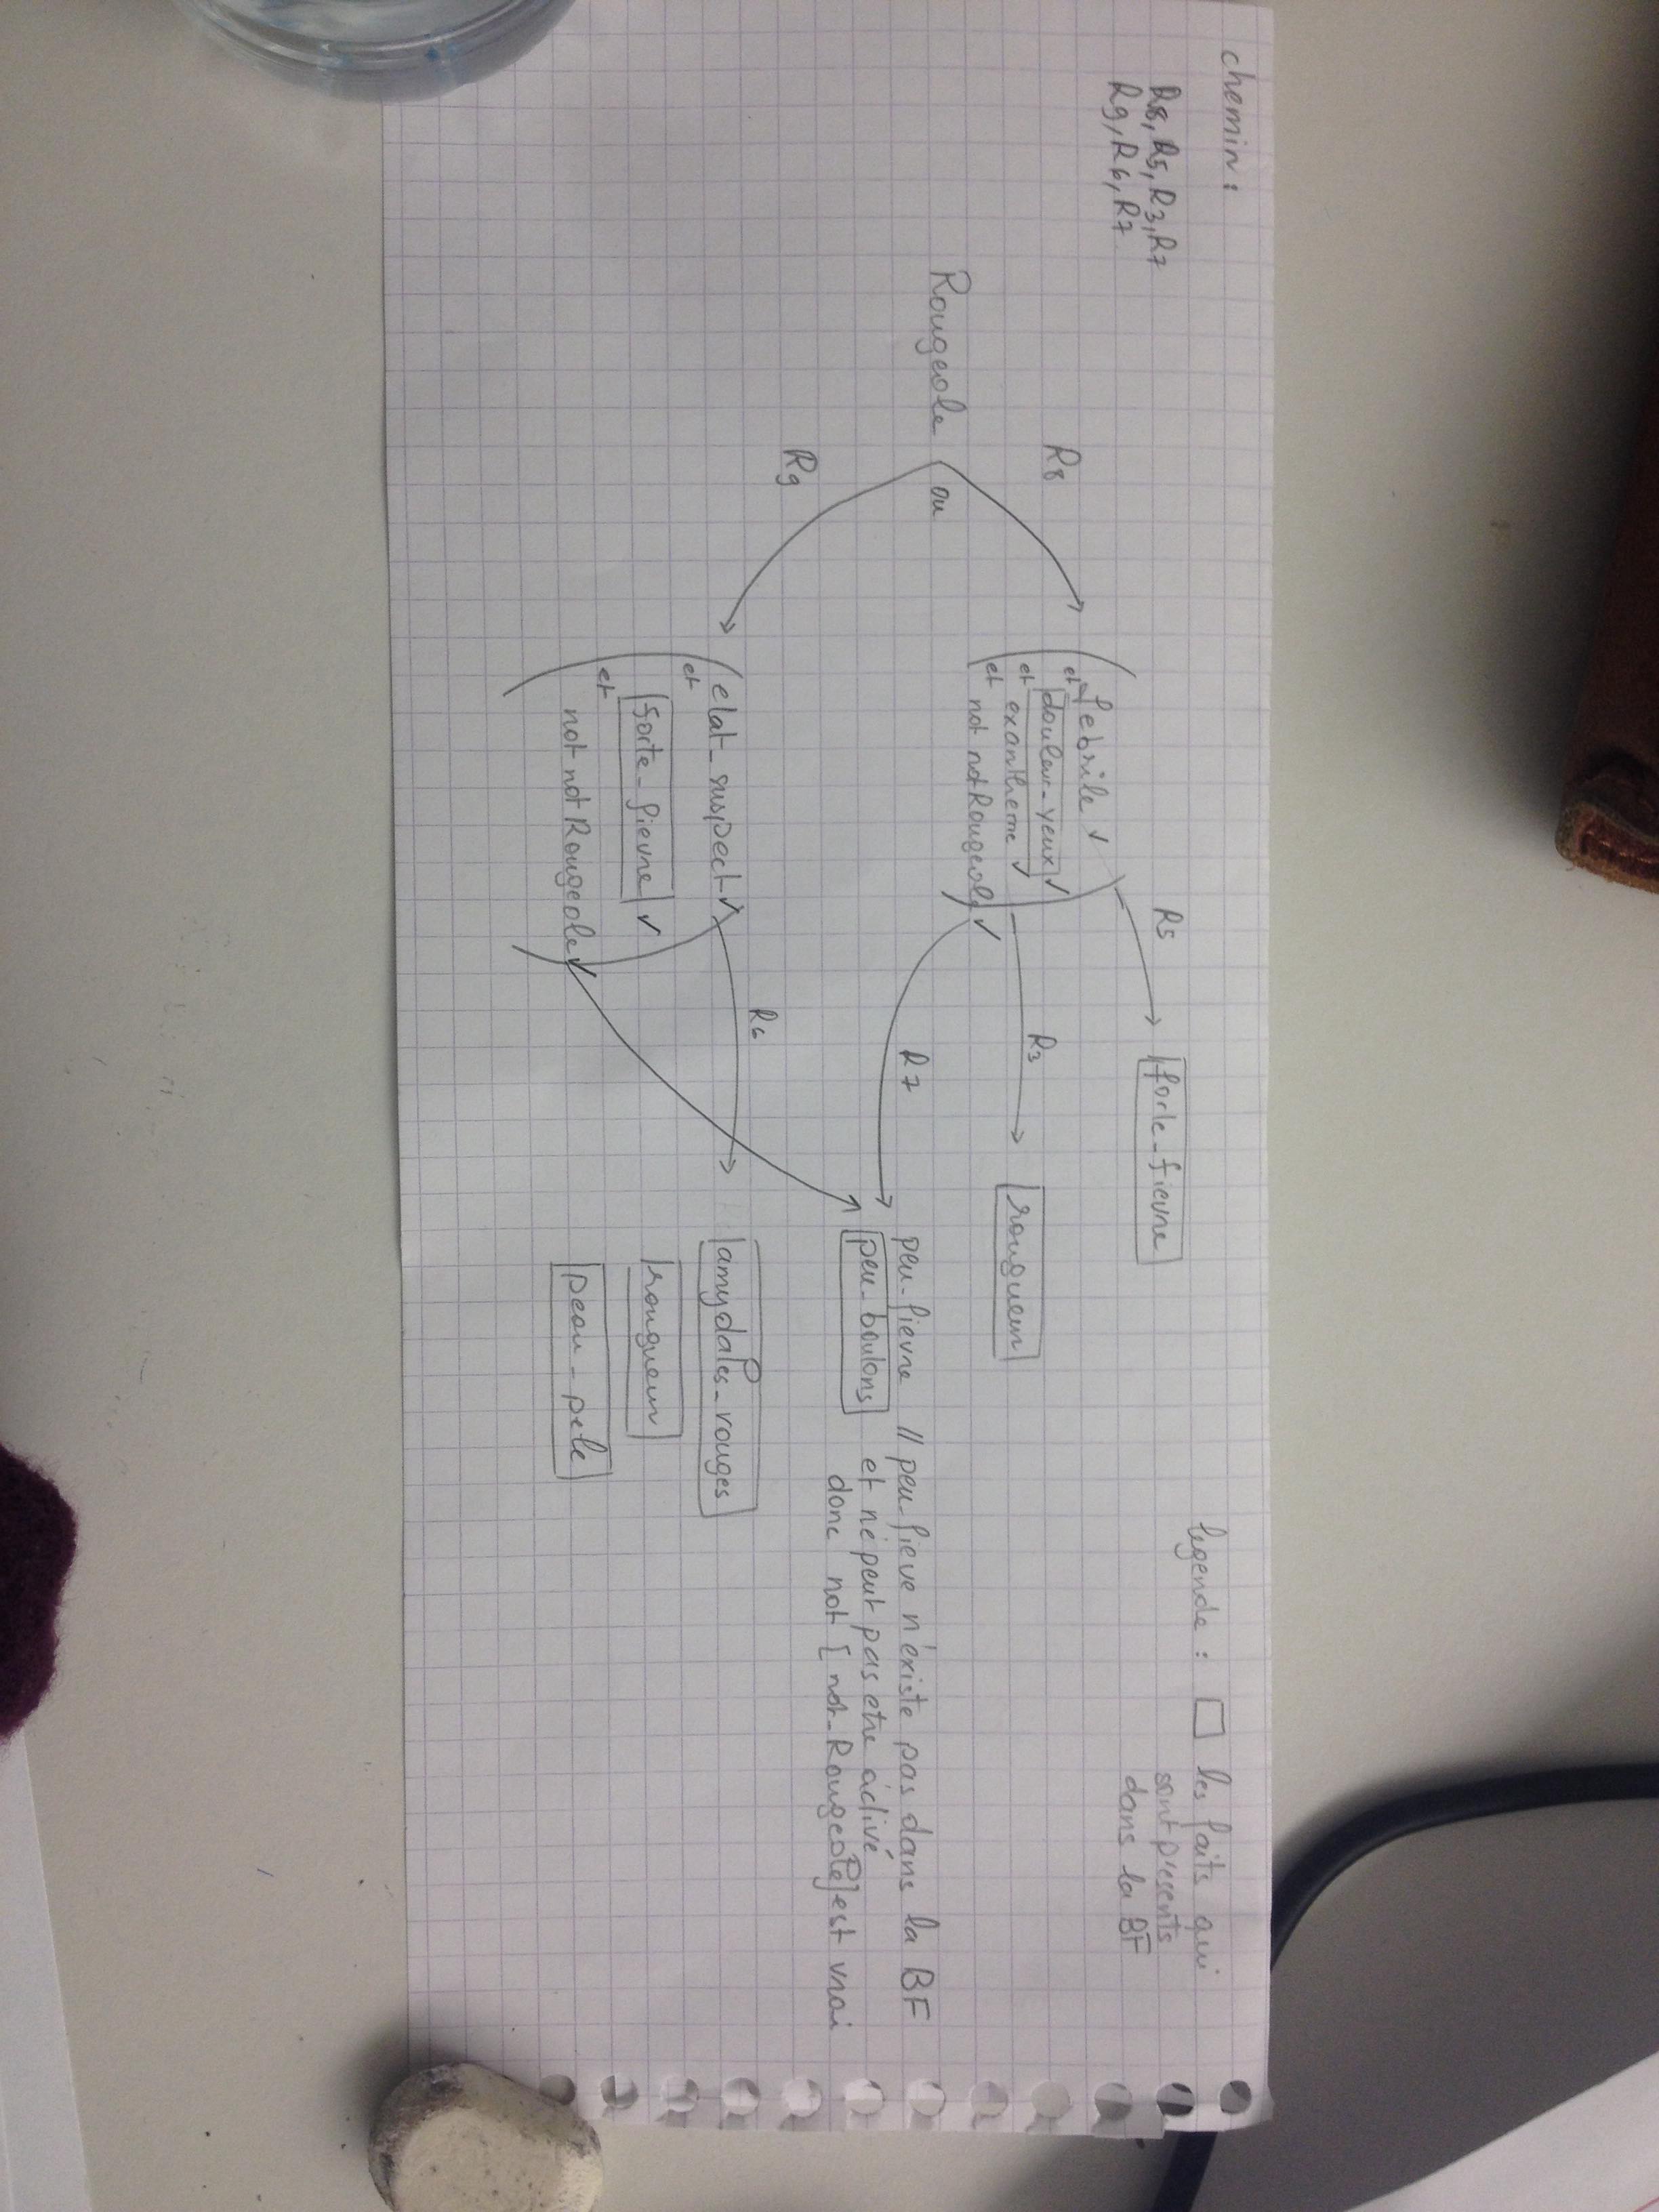 chemin :
R8, R5, R3, R7
R9, R6, R7
legende : □ les faits qui
sont présents
dans la BF
R5
forte_fievre
R8
febrile ✓
et
douleur_yeux ✓
et
exantheme ✓
et
not notRougeole ✓
R3
rougueur
Rougeole
ou
R7
peu_fievre // peu_fieve n'existe pas dans la BF
peu_boutons et ne peut pas etre activé
donc not [not_Rougeole] est vrai
R9
R6
etat_suspect ✓
et
forte_fievre ✓
et
not notRougeole ✓
amydales_rouges
rougueur
peau_pele